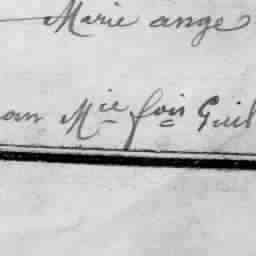 Marie ange
an Mie fois Guil